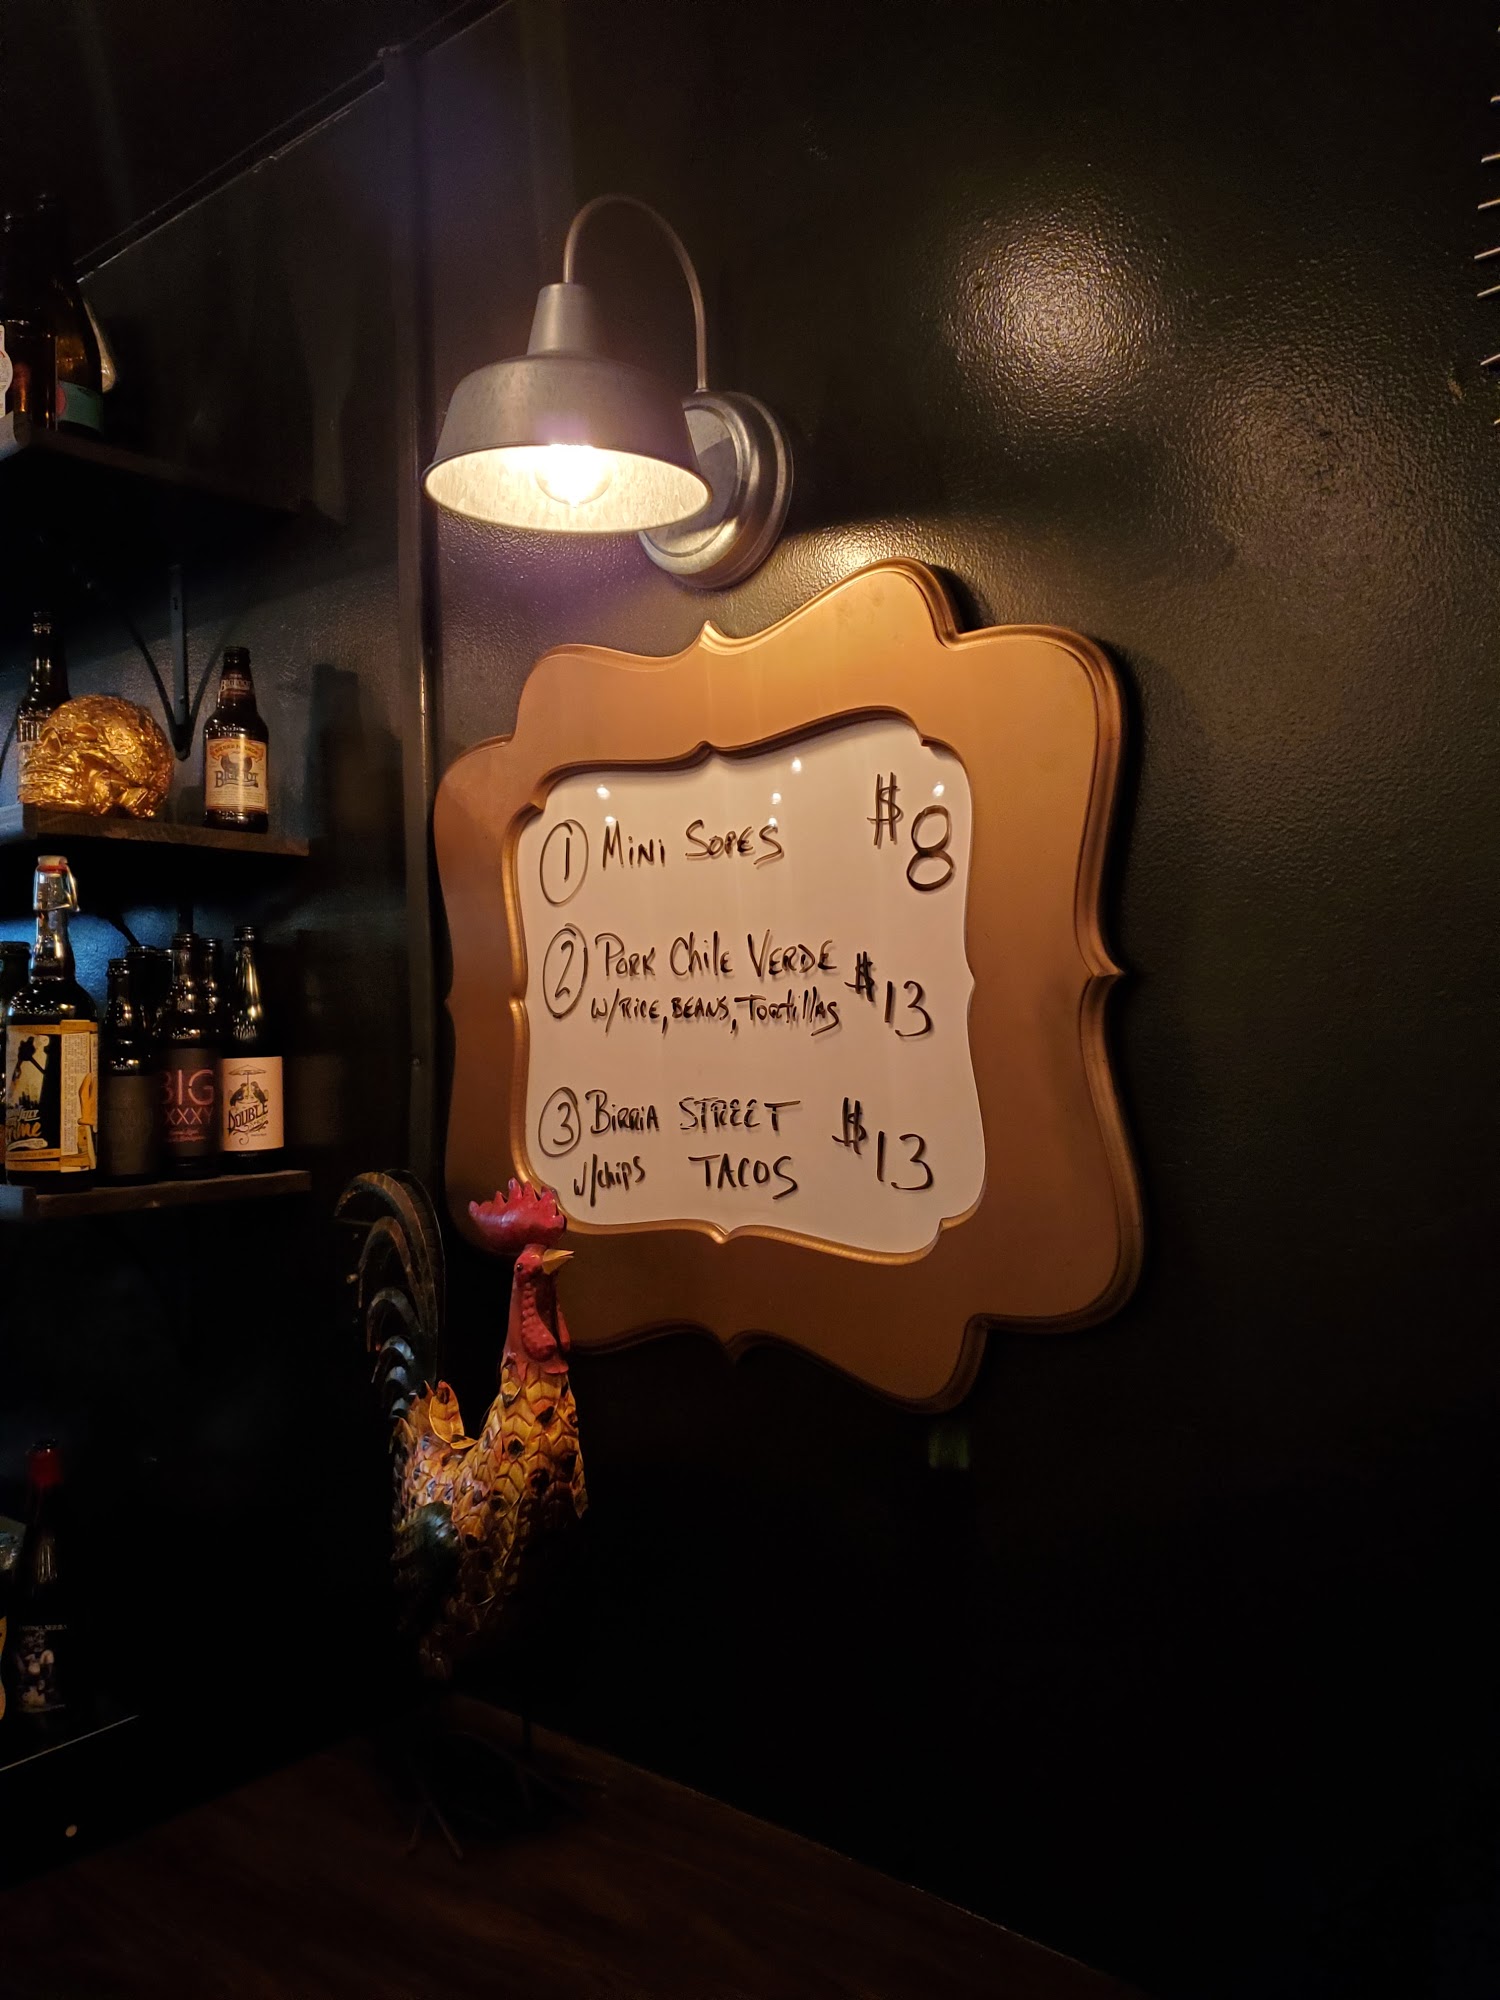 ① Mini Sopes $8
② Pork Chile Verde $13
w/ Rice, Beans, Tortillas
③ Birria Street $13
w/chips Tacos
BIG
XXXY
DOUBLE